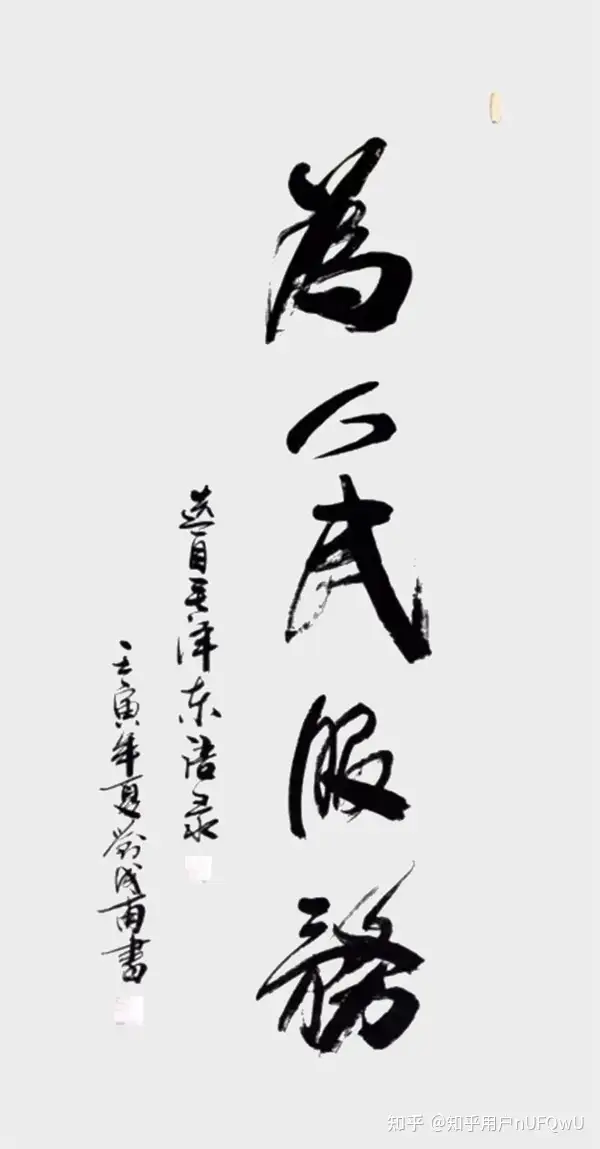 為人民服務
选自毛泽东语录
壬寅年夏劉書
知乎 @知乎用户nUFQwU